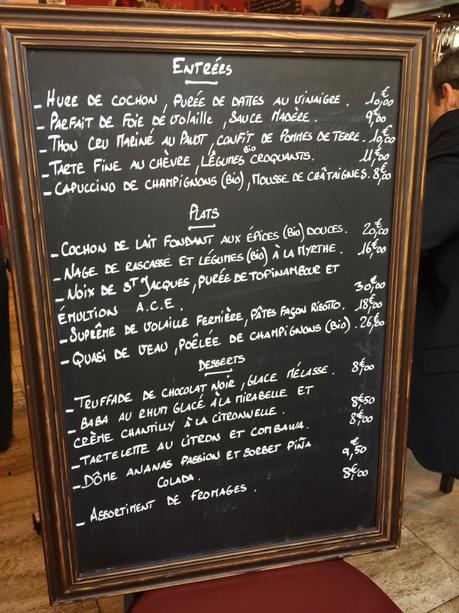 ENTRÉES
- HURE DE COCHON, PURÉE DE DATTES AU VINAIGRE. 10,€00
- PARFAIT DE FOIE DE VOLAILLE, SAUCE MADÈRE. 9,€00
- THON CRU MARINÉ AU PAVOT, CONFIT DE POMMES DE TERRE. 10,€00
- TARTE FINE AU CHÈVRE, LÉGUMES BIO CROQUANTS. 11,€00
- CAPUCCINO DE CHAMPIGNONS (BIO), MOUSSE DE CHÂTAIGNES. 8,€50
PLATS
- COCHON DE LAIT FONDANT AUX ÉPICES (BIO) DOUCES. 20,€00
- NAGE DE RASCASSE ET LÉGUMES (BIO) À LA MYRTHE. 16,€00
- NOIX DE ST JACQUES, PURÉE DE TOPINAMBOUR ET
ÉMULTION A.C.E. 30,€00
- SUPRÊME DE VOLAILLE FERMIÈRE, PÂTES FAÇON RISOTTO. 18,€00
- QUASI DE VEAU, POÊLÉE DE CHAMPIGNONS (BIO). 26,€00
DESSERTS
- TRUFFADE DE CHOCOLAT NOIR, GLACE MÉLASSE. 8,€00
- BABA AU RHUM GLACÉ À LA MIRABELLE ET
CRÈME CHANTILLY À LA CITRONNELLE. 8,€50
- TARTELETTE AU CITRON ET COMBAWA. 8,€00
- DÔME ANANAS PASSION ET SORBET PIÑA
COLADA. 9,€50
- ASSORTIMENT DE FROMAGES. 8,€00